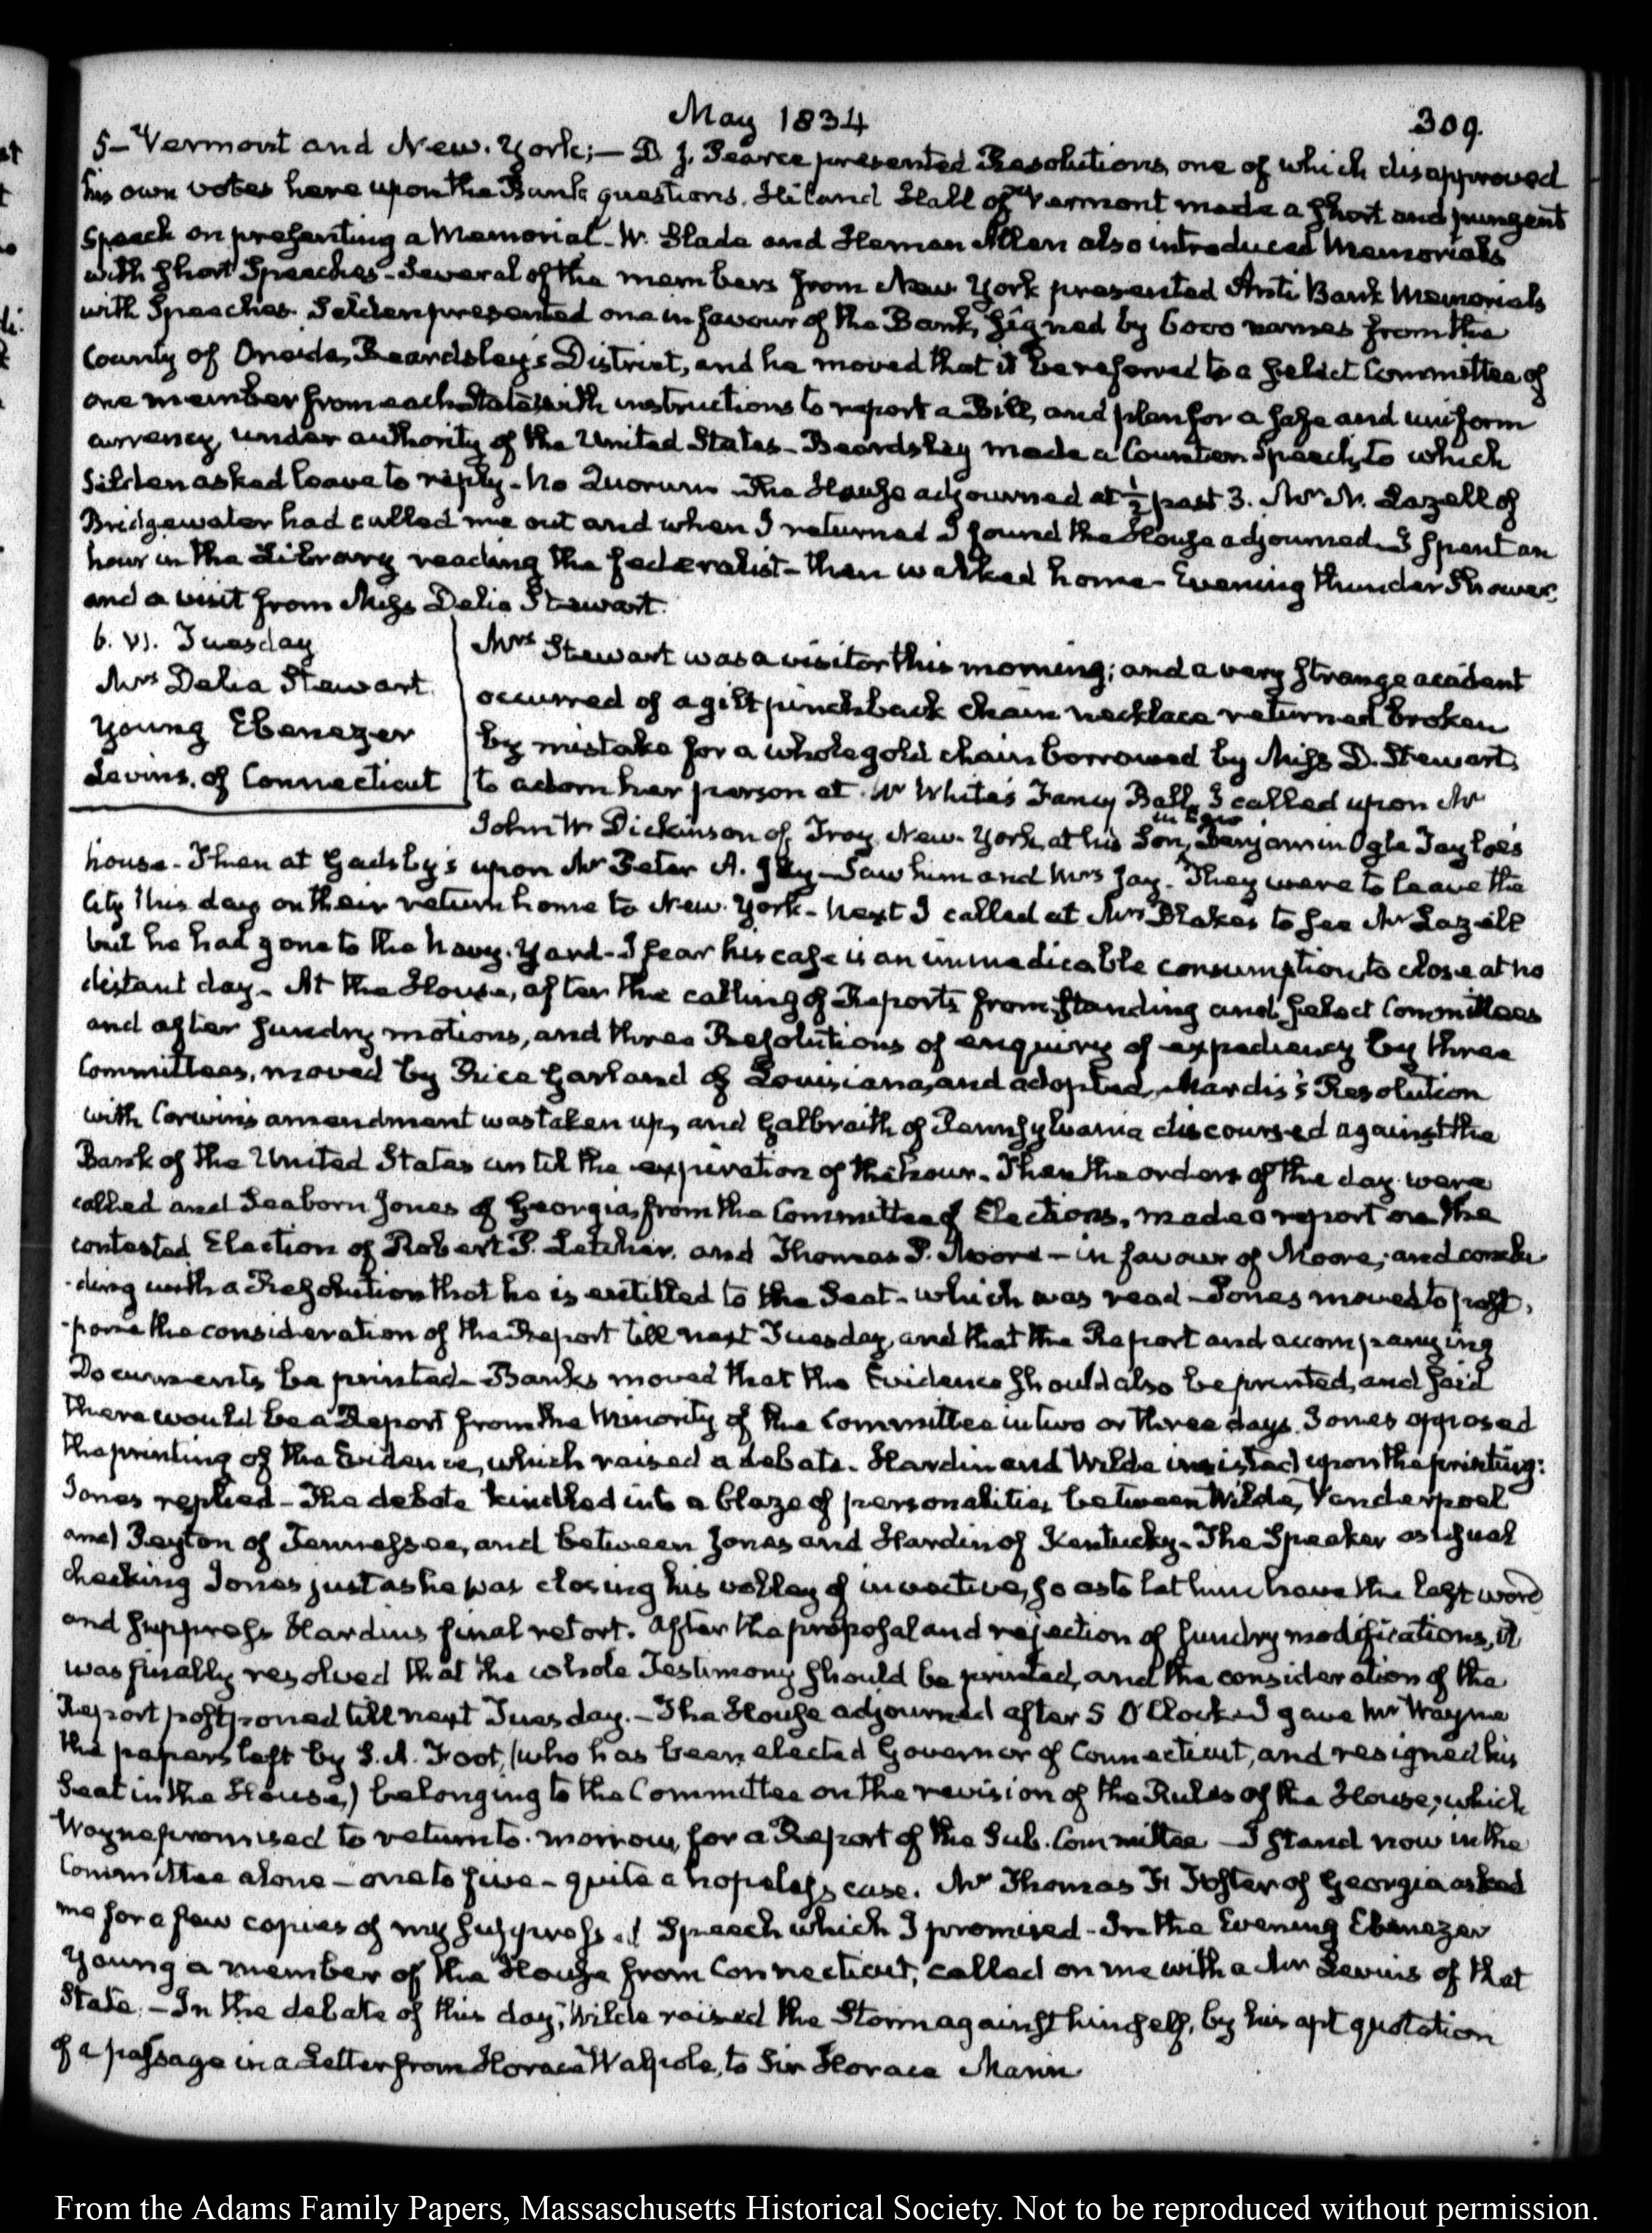 May 1834
309.
5— Vermont and New-York;— D. J. Pearce presented Resolutions, one of which disapproved
his own votes here upon the Bank questions. Hiland Hall of Vermont made a short and pungent
Speech on presenting a Memorial— W. Slade and Heman Allen also introduced Memorials
with short Speeches— Several of the members from New York presented Anti Bank Memorials
with Speeches. Selden presented one in favour of the Bank, signed by 6000 names from the
County of Oneida, Beardsley's District, and he moved that it be referred to a select Committee of
one member from each State with instructions to report a Bill, and plan for a safe and uniform
currency, under authority of the United States— Beardsley made a Counter Speech, to which
Selden asked leave to reply— No Quorum— The House adjourned at ½ past 3. Mr N. Lazell of
Bridgewater had called me out and when I returned I found the House adjourned— I spent an
hour in the Library reading the Federalist— then walked home— Evening thunder Shower,
and a visit from Miss Delia Stewart.
6. VI. Tuesday
Mrs Delia Stewart.
Young Ebenezer
Levins. of Connecticut
Mrs Stewart was a visitor this morning; and a very strange accident
occurred of a gilt pinchback chain necklace returned broken
by mistake for a whole gold chain borrowed by Miss D. Stewart,
to adorn her person at Mr White's Fancy Ball. I called upon Mr
John W Dickinson of Troy, New-York, at his Son in Law, Benjamin Ogle Tayloe's
house— Then at Gadsby's upon Mr Peter A. Jay— Saw him and Mrs Jay— They were to leave the
City this day on their return home to New-York— Next I called at Mrs Blake's to see Mr Lazell
but he had gone to the Navy-Yard— I fear his case is an immedicable consumption, to close at no
distant day— At the House, after the calling of Reports from standing and select Committees
and after sundry motions, and three Resolutions of enquiry of expediency by three
Committees, moved by Rice Garland of Louisiana, and adopted, Mardis's Resolution
with Corwin's amendment was taken up, and Galbraith of Pennsylvania discoursed against the
Bank of the United States until the expiration of the hour— Then the orders of the day were
called and Seaborn Jones of Georgia, from the Committee of Elections, made a report on the
contested Election of Robert P. Letcher, and Thomas P. Moore— in favour of Moore; and conclu
-ding with a Resolution that he is entitled to the Seat— which was read— Jones moved to post-
-pone the consideration of the Report till next Tuesday, and that the Report and accompanying
Documents be printed— Banks moved that the Evidence should also be printed, and said
there would be a Report from the Minority of the Committee in two or three days. Jones opposed
the printing of the Evidence, which raised a debate. Hardin and Wilde insisted upon the printing:
Jones replied— The debate kindled into a blaze of personalities between Wilde, Vanderpoel
and Peyton of Tennessee, and between Jones and Hardin of Kentucky— The Speaker as usual
checking Jones just as he was closing his volley of invective, so as to let him have the last word
and suppress Hardin's final retort. After the proposal and rejection of sundry modifications, it
was finally resolved that the whole Testimony should be printed, and the consideration of the
Report postponed till next Tuesday.— The House adjourned after 5 O'Clock— I gave Mr Wayne
the papers left by S. A. Foot, (who has been elected Governor of Connecticut, and resigned his
Seat in the House,) belonging to the Committee on the revision of the Rules of the House; which
Wayne promised to return to-morrow, for a Report of the Sub-Committee— I stand now in the
Committee alone— one to five— quite a hopeless case. Mr Thomas F. Foster of Georgia asked
me for a few copies of my suppressed Speech which I promised— In the Evening Ebenezer
Young a member of the House from Connecticut, called on me with a Mr Levins of that
State.— In the debate of this day, Wilde raised the Storm against himself, by his apt quotation
of a passage in a Letter from Horace Walpole, to Sir Horace Mann
From the Adams Family Papers, Massachusetts Historical Society. Not to be reproduced without permission.